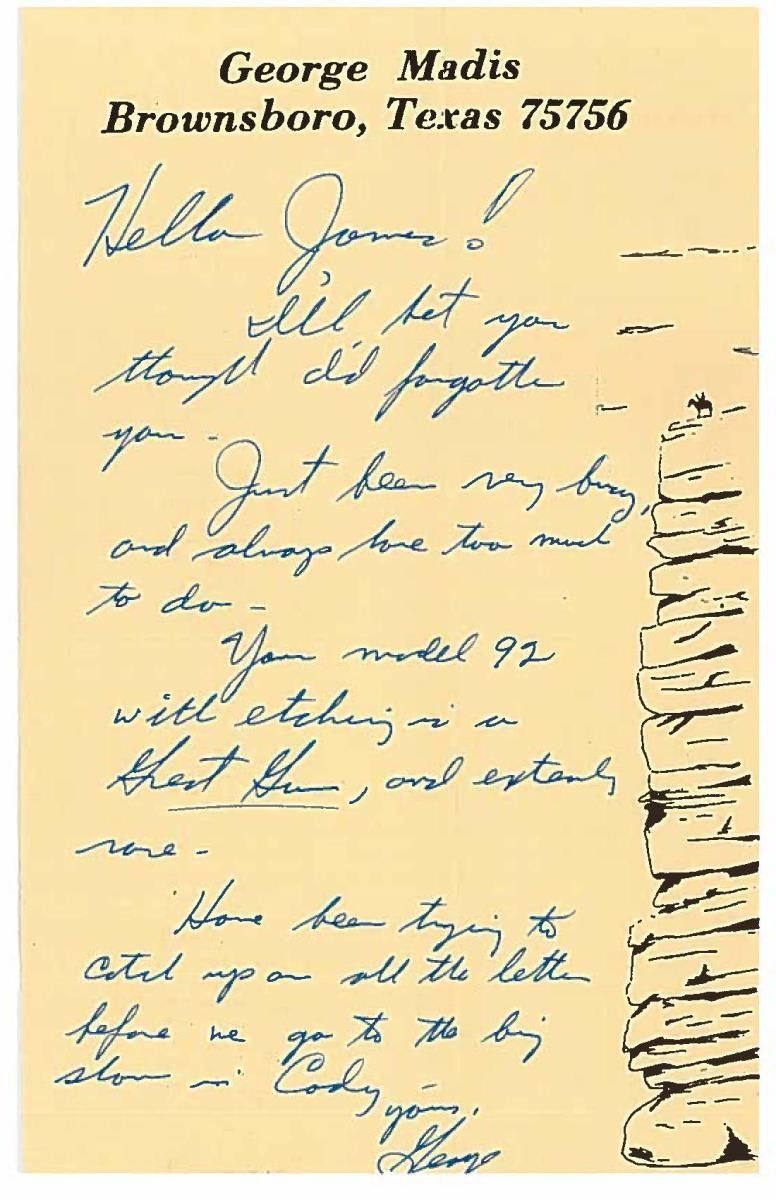 George Madis
Brownsboro, Texas 75756
Hello James!
I'll bet you
thought I'd forgotten
you -
Just been very busy,
and always have too much
to do -
Your model 92
with etching is a
Great Gun, and extremely
rare -
Have been trying to
catch up on all the letters
before we go to the big
show in Cody,
yours,
George